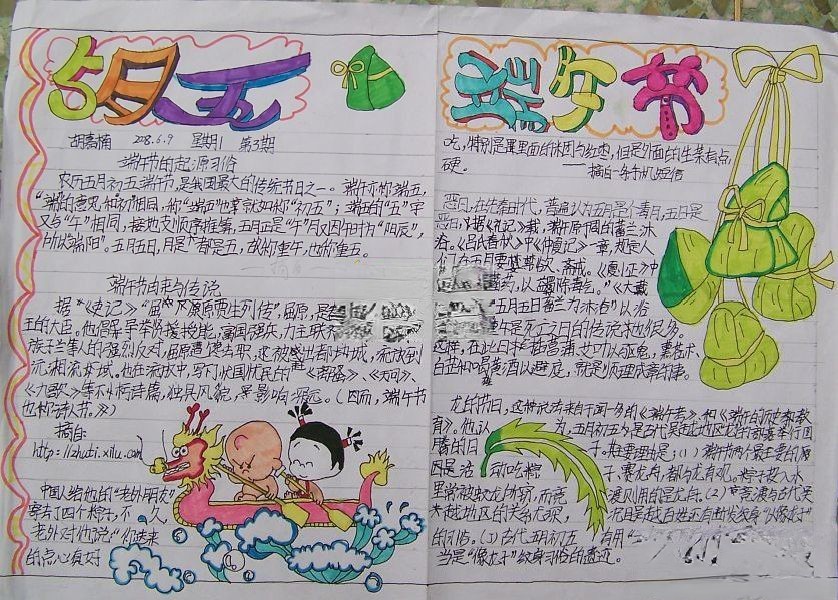 5月五
胡嘉楠 2008.6.9 星期1 第3期
端午节的起源习俗
农历五月初五端午节,是我国最大的传统节日之一。端午亦称端五,
"端"的意思和"初"相同,称"端五"也就如称"初五";端五的"五"字
又与"午"相同,按地支顺序推算,五月正是"午"月又因午时为"阳辰",
所以端阳。五月五日,月是五都是五,故称重午,也称重五。
端午节由来与传说
据《史记》"屈 原贾生列传",屈原,是
王的大臣。他倡导举贤授能,富国强兵,力主联齐
族子兰等人的强烈反对,屈原遭馋去职,逐出都城,流放到
沅、湘流域。他在流放中,写下忧国忧民的《离骚》、《天问》、
《九歌》等不朽诗篇,独具风貌,影响深远。(因而,端午节
也称诗人节。)
摘自:
http://zhuti.xilu.com
中国人给他的"老外朋友"
寄去了四个粽子,不久,
老外对他说:"你送来
的点心真好
端午节
吃,特别是里面的米团和红枣,但是外面的生菜有点
硬。
——摘自—条手机短信
恶日,在先秦时代,普遍认为五月是个毒月,五日是
恶日,据《礼记》载,端午源于周的蓄兰沐
浴。《吕氏春秋》中《仲夏记》一章,规定人
们在五月要禁欲、斋戒。《夏小正》中
药,以蠲除毒气。"《大戴
"五月五日蓄兰为沐浴"以浴
是死亡之日的传说也很多。
这样,在此日插菖蒲、艾叶以驱鬼,薰苍术、
白芷和喝雄黄酒以避疫,就是顺理成章的事。
龙的节日,这种说法来自于闻一多的《端午考》和《端午的历史教
育》。他认为,五月初五为是古代吴越地区龙的部落举行图
腾的日子,其主要理由是:(1)端午节两个最主要的
因是 活动和吃粽子,赛龙舟,都与龙有观。粽子投入水
里常被蛟龙所窃,而竞渡则用的是龙舟。(2)竞渡与古代吴
越地区的关系尤深,况且吴越百姓还有断发纹身"以像龙子"
的习俗。(3)古代五月初五有用"
当是"像龙子"纹身习俗的遗迹。